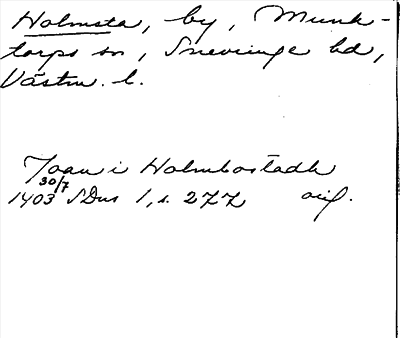 Holmsta, by, Munk-
torps sn, Snevringe hd,
Västm. l.
Joan i Holmbostadh
30/7
1403 SDns 1, s. 277 orig.